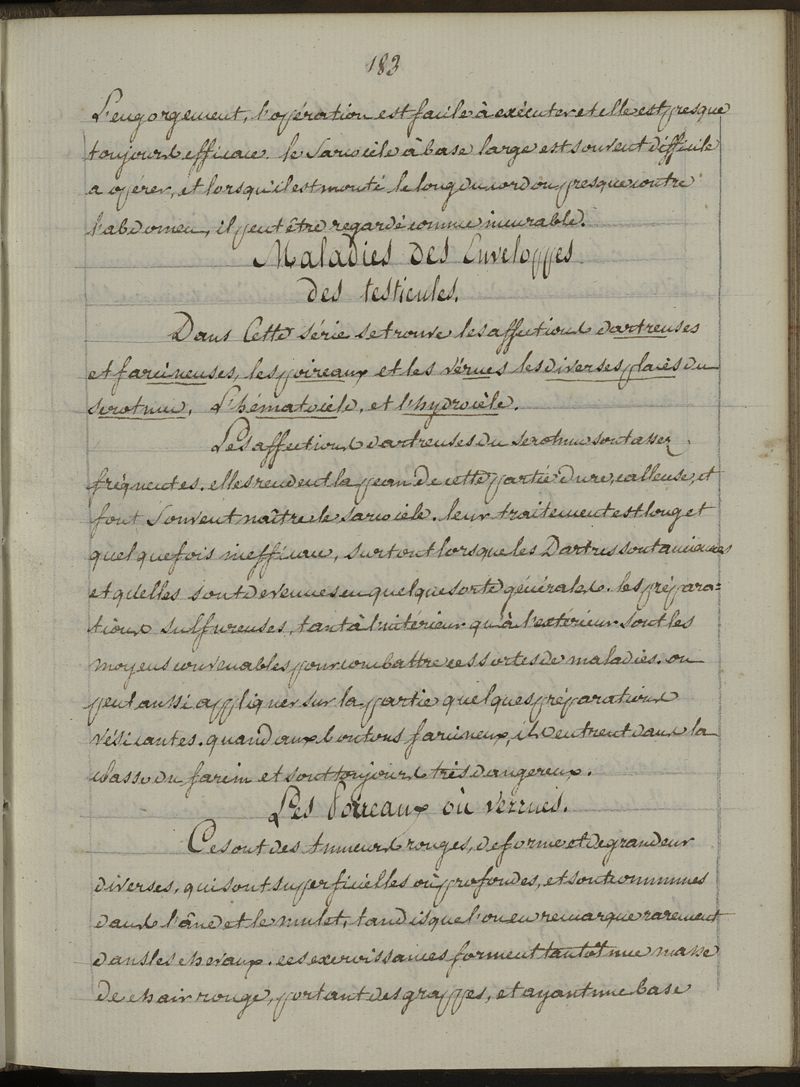 183
L'engorgement, l'opération est facile à exécuter et elle est presque
toujours efficace. le Sarcocèle à base large est souvent difficile
a opérer, et lorsqu'il est monté le long du cordon presque contre
l'abdomen, il peut être regardé comme incurable.
Maladies des Enveloppes
des testicules.
Dans Cette série se trouve les affections dartreuses
et farcineuses, les poireaux et les vérues les diverses plaies du
scrotum, L'hématocèle, et l'hydrocèle.
Les affections dartreuses du scrotum sont assez
fréquentes. elles rendent la peau de cette partie dure, calleuse, et
font Souvent naître le sarcocèle. leur traitement est long et
quelquefois inefficace, surtout lorsque les Dartres sont anciennes
et qu'elles sont devenues en quelque sorte générales. les prépara=
tions sulfureuses, tant à l'intérieur qu'à l'extérieur sont les
moyens convenables pour combattre ces sortes de maladies. on
peut aussi appliquer sur la partie quelques préparations
vésicantes. quand aux boutons farcineux, ils entrent dans la
classe du farcin et sont toujours très dangereux.
Les Poireaux où Verrues.
Ce sont des tumeurs rouges, de forme et de grandeur
diverses, qui sont superficielles où profondes, et sont communes
dans l'âne et le mulet, tandis que l'on en remarque rarement
dans les chevaux. ces excroissances forment tantôt une masse
de chair rouge, portant des grappes, et ayant une base